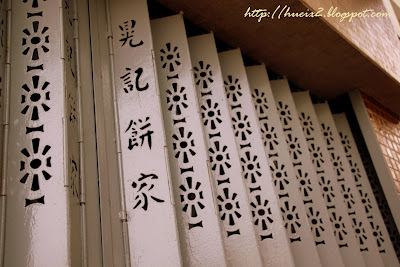 http://hueix2.blogspot.com
晃記餅家